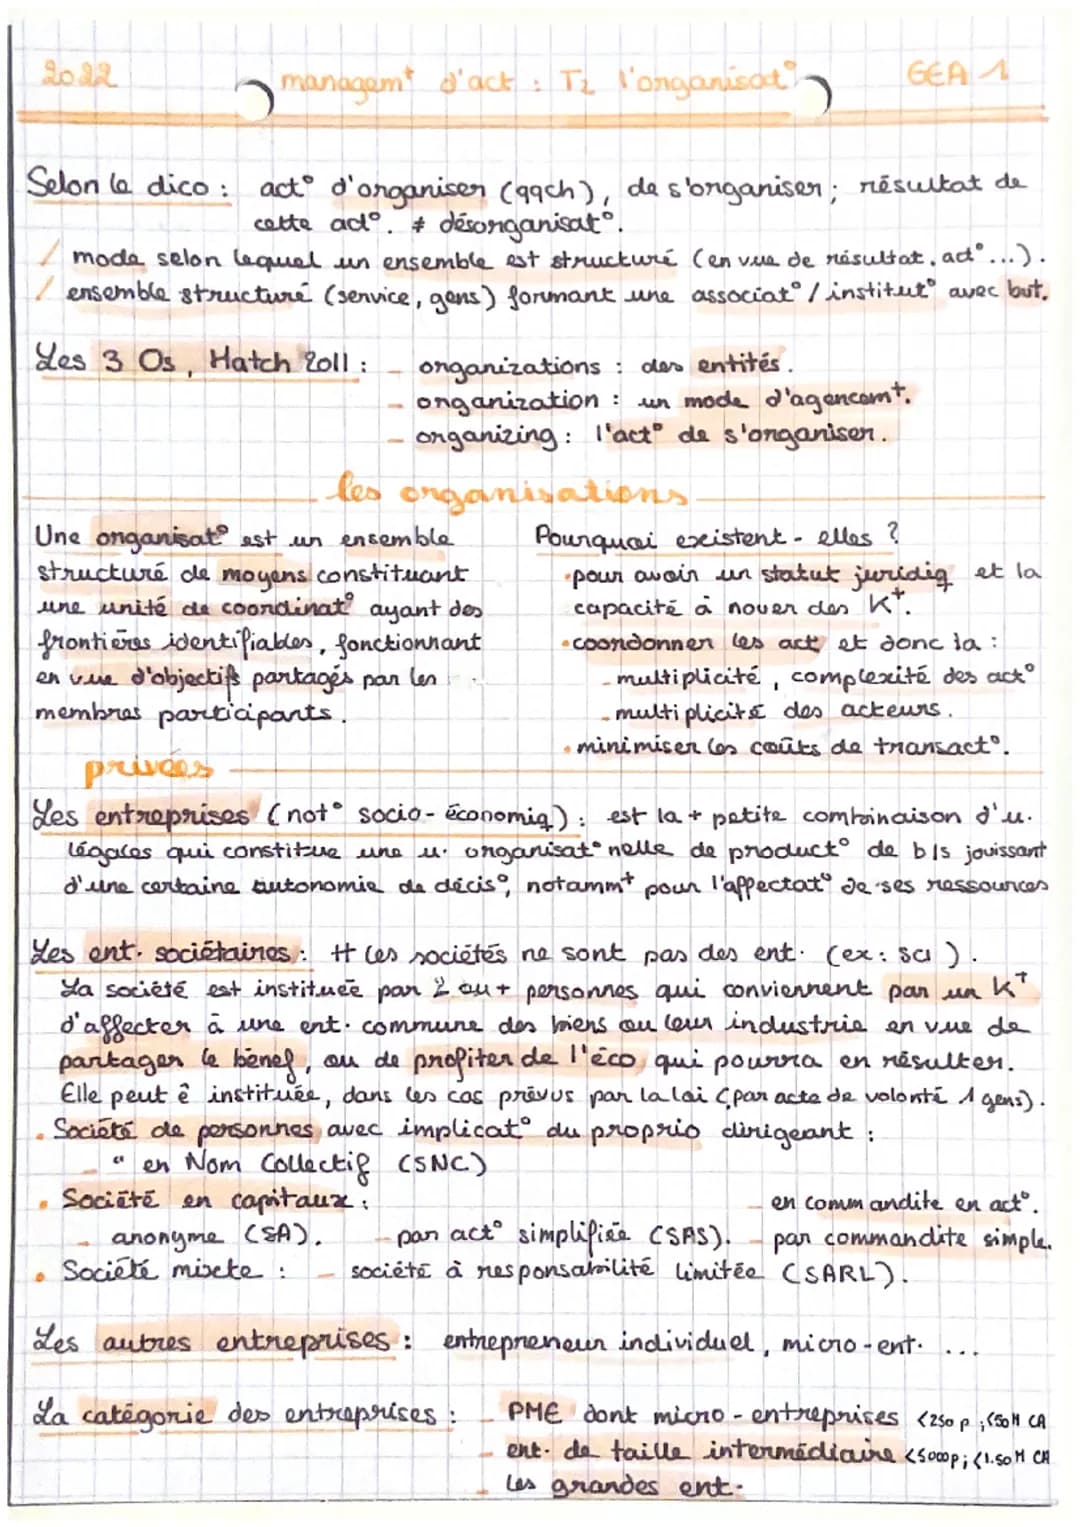 2022 managemt d'act : T2 l'organisat° GEA 1
Selon le dico : act° d'organiser (qqch), de s'organiser ; résultat de
cette act°. ≠ désorganisat°.
/ mode selon lequel un ensemble est structuré (en vue de résultat, act°...).
/ ensemble structuré (service, gens) formant une associat° / institut° avec but.
Les 3 Os, Hatch 2011 : - organizations : des entités.
- organization : un mode d'agencemt.
- organizing : l'act° de s'organiser.
les organisations
Une organisat° est un ensemble
structuré de moyens constituant
une unité de coordinat° ayant des
frontières identifiables, fonctionnant
en vue d'objectifs partagés par les
membres participants.
Pourquoi existent-elles ?
• pour avoir un statut juridiq et la
capacité à nouer des Kt.
• coordonner les act et donc la :
- multiplicité, complexité des act°
- multiplicité des acteurs.
• minimiser les coûts de transact°.
privées
Les entreprises (not° socio-économiq) : est la + petite combinaison d'u.
légales qui constitue une u. organisat°nelle de product° de b/s jouissant
d'une certaine autonomie de décis°, notammt pour l'affectat° de ses ressources
Les ent. sociétaires : tt les sociétés ne sont pas des ent. (ex : sci).
La société est instituée par 2 ou + personnes qui conviennent par un Kt
d'affecter à une ent. commune des biens ou leur industrie en vue de
partager le bénef, ou de profiter de l'éco qui pourra en résulter.
Elle peut ê instituée, dans les cas prévus par la loi (par acte de volonté 1 gens).
• Société de personnes avec implicat° du proprio dirigeant :
- " en Nom Collectif (SNC)
• Société en capitaux : - en commandite en act°.
- anonyme (SA). - par act° simplifiée (SAS). - par commandite simple.
• Société mixte : - société à responsabilité limitée (SARL).
Les autres entreprises : entrepreneur individuel, micro-ent. ...
La catégorie des entreprises : - PME dont micro-entreprises <250 p ; <50 M CA
- ent. de taille intermédiaire <5000p ; <1.50 M CA
- les grandes ent.